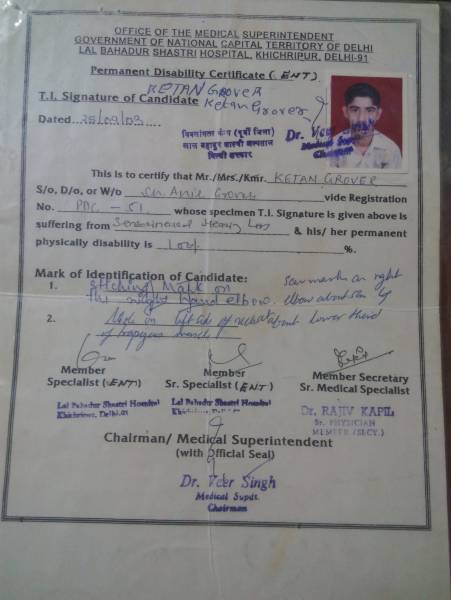 OFFICE OF THE MEDICAL SUPERINTENDENT
GOVERNMENT OF NATIONAL CAPITAL TERRITORY OF DELHI
LAL BAHADUR SHASTRI HOSPITAL, KHICHRIPUR, DELHI-91
Permanent Disability Certificate (ENT)
KETAN GROVER
T.I. Signature of Candidate Ketan Grover
Dated 25/09/03
विकलांगता कैंप (पूर्वी जिला)
लाल बहादुर शास्त्री अस्पताल
दिल्ली सरकार
Dr. Veer
Medical Supdt.
Chairman
This is to certify that Mr./Mrs./Kmr. KETAN GROVER
S/o, D/o, or W/o Sh Anil Grover vide Registration
No. PDC - 51 whose specimen T.I. Signature is given above is
suffering from Sensorineural Hearing Loss & his/her permanent
physically disability is %.
Mark of Identification of Candidate:
1. stitching Mark on the right hand elbow. Scar mark on right elbow about
2. Mole on left side of about lower third of
Member
Specialist (ENT)
Lal Bahadur Shastri Hospital
Khichripur, Delhi-91
Member
Sr. Specialist (ENT)
Lal Bahadur Shastri Hospital
Khichripur, Delhi-91
Member Secretary
Sr. Medical Specialist
Dr. RAJIV KAPIL
Sr. PHYSICIAN
MEMBER (SECY.)
Chairman/ Medical Superintendent
(with official Seal)
Dr. Veer Singh
Medical Supdt.
Chairman